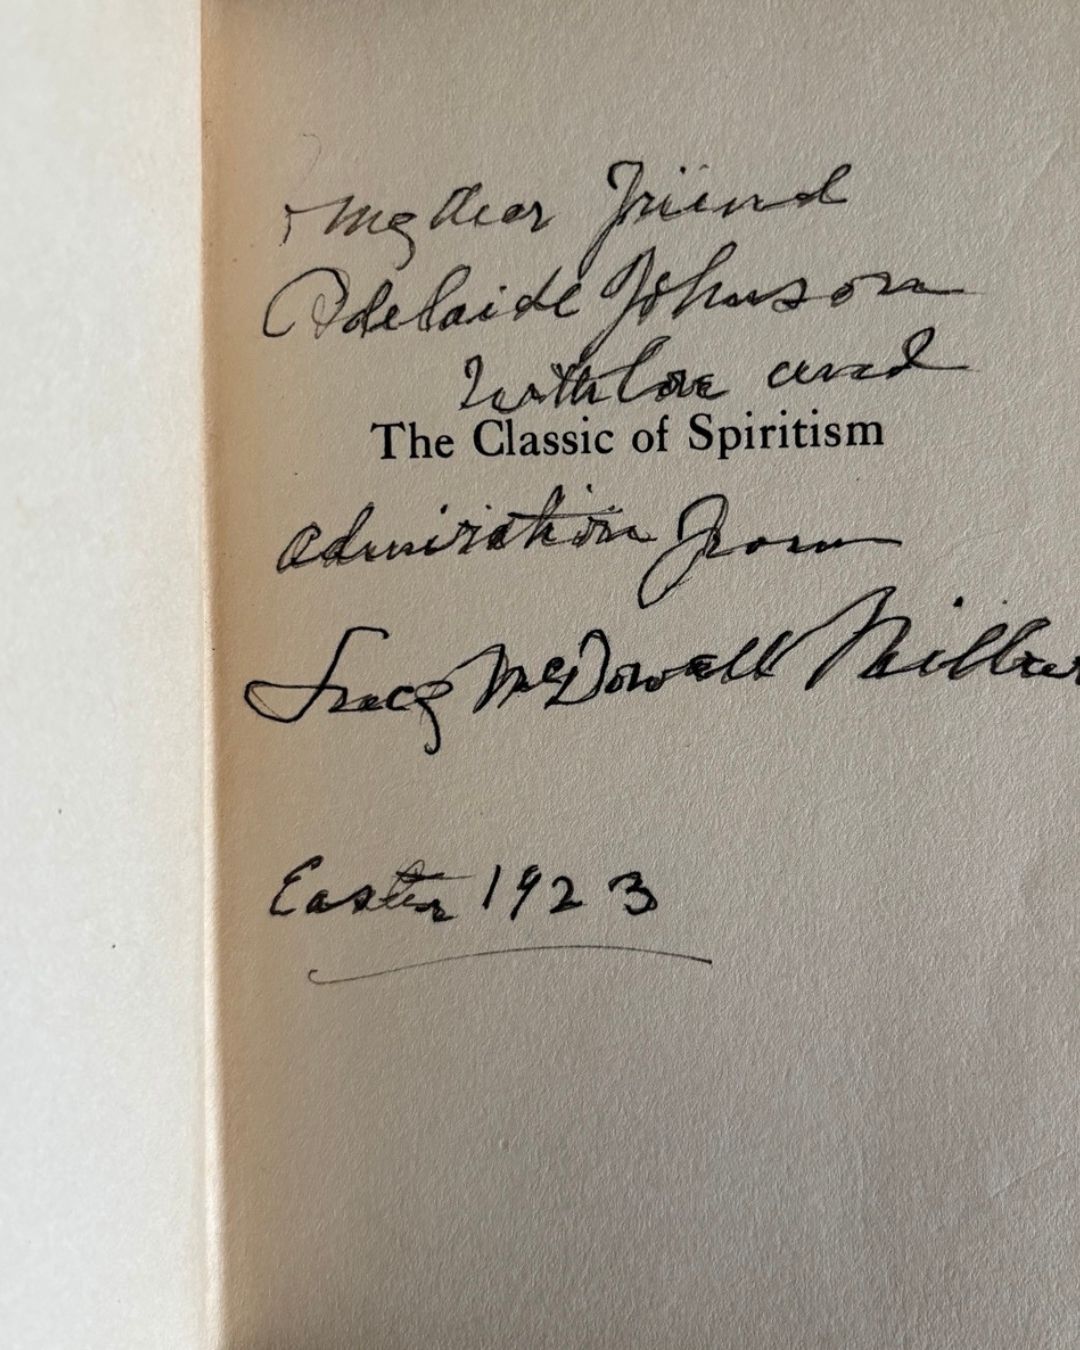 my dear Friend
Adelaide Johnson
with love and
The Classic of Spiritism
admiration from
Lucy McDowell Milbur
Easter 1923